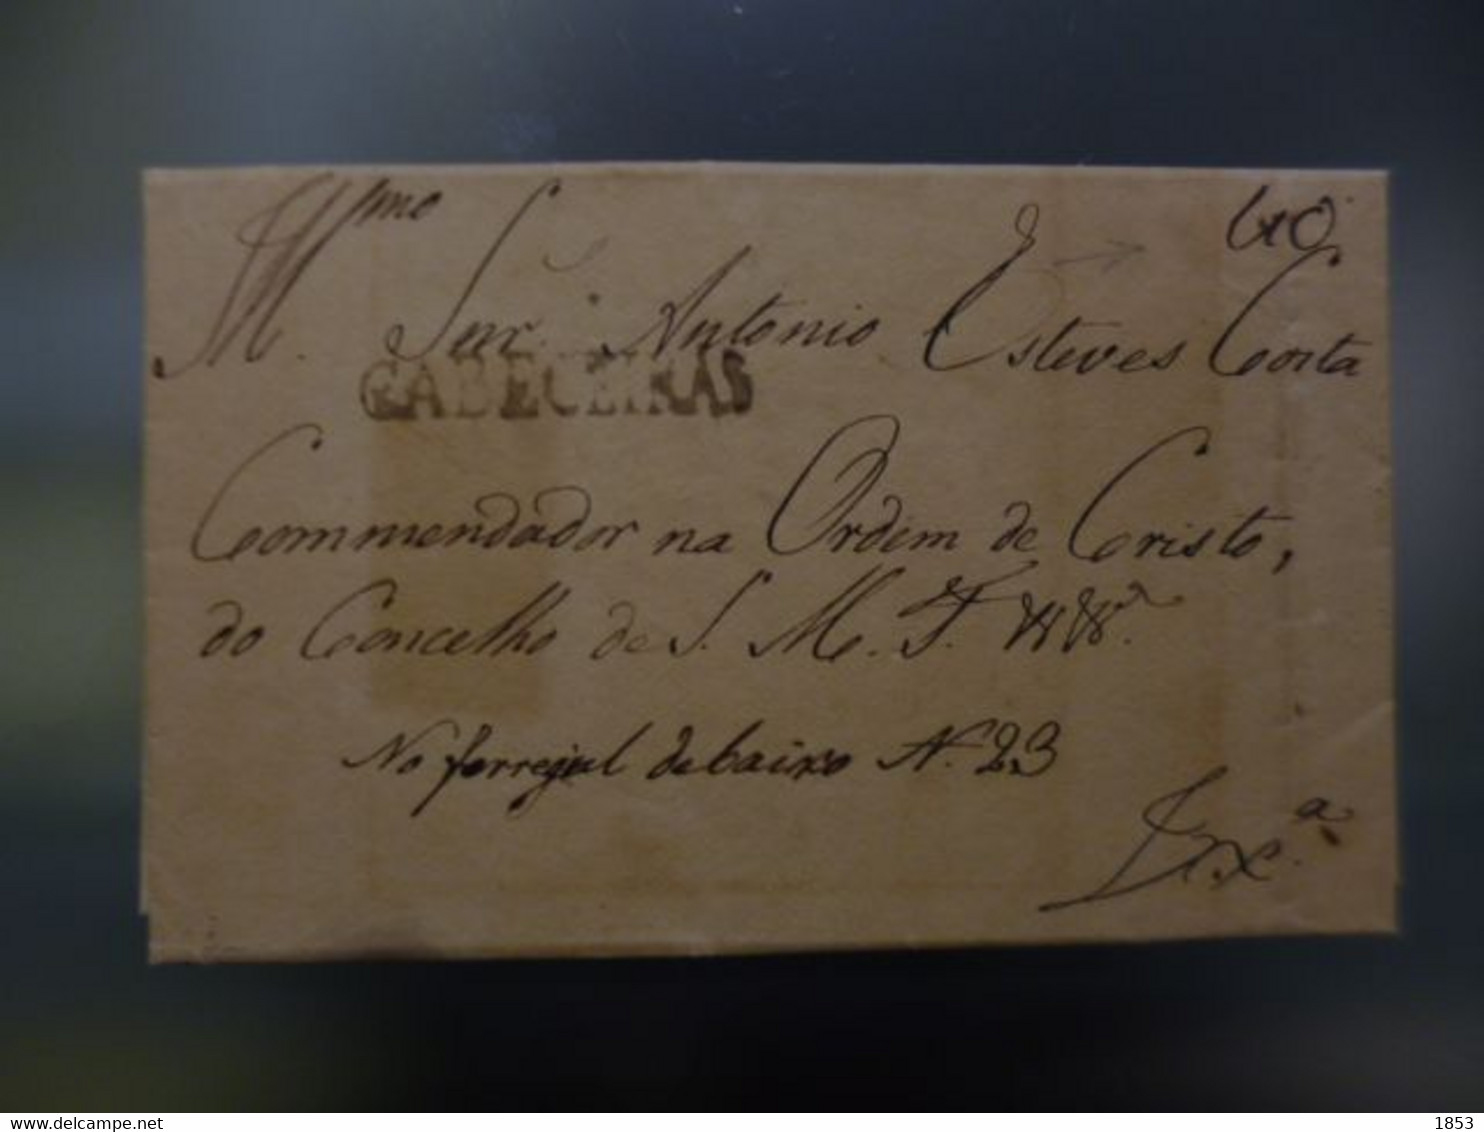 Illmo Snr. Antonio Esteves Costa
40
CABECEIRAS
Commendador na Ordem de Cristo,
do Concelho de S. M. F.
No ferregial debaixo N. 23
Lx.a
delcampe.net
1853